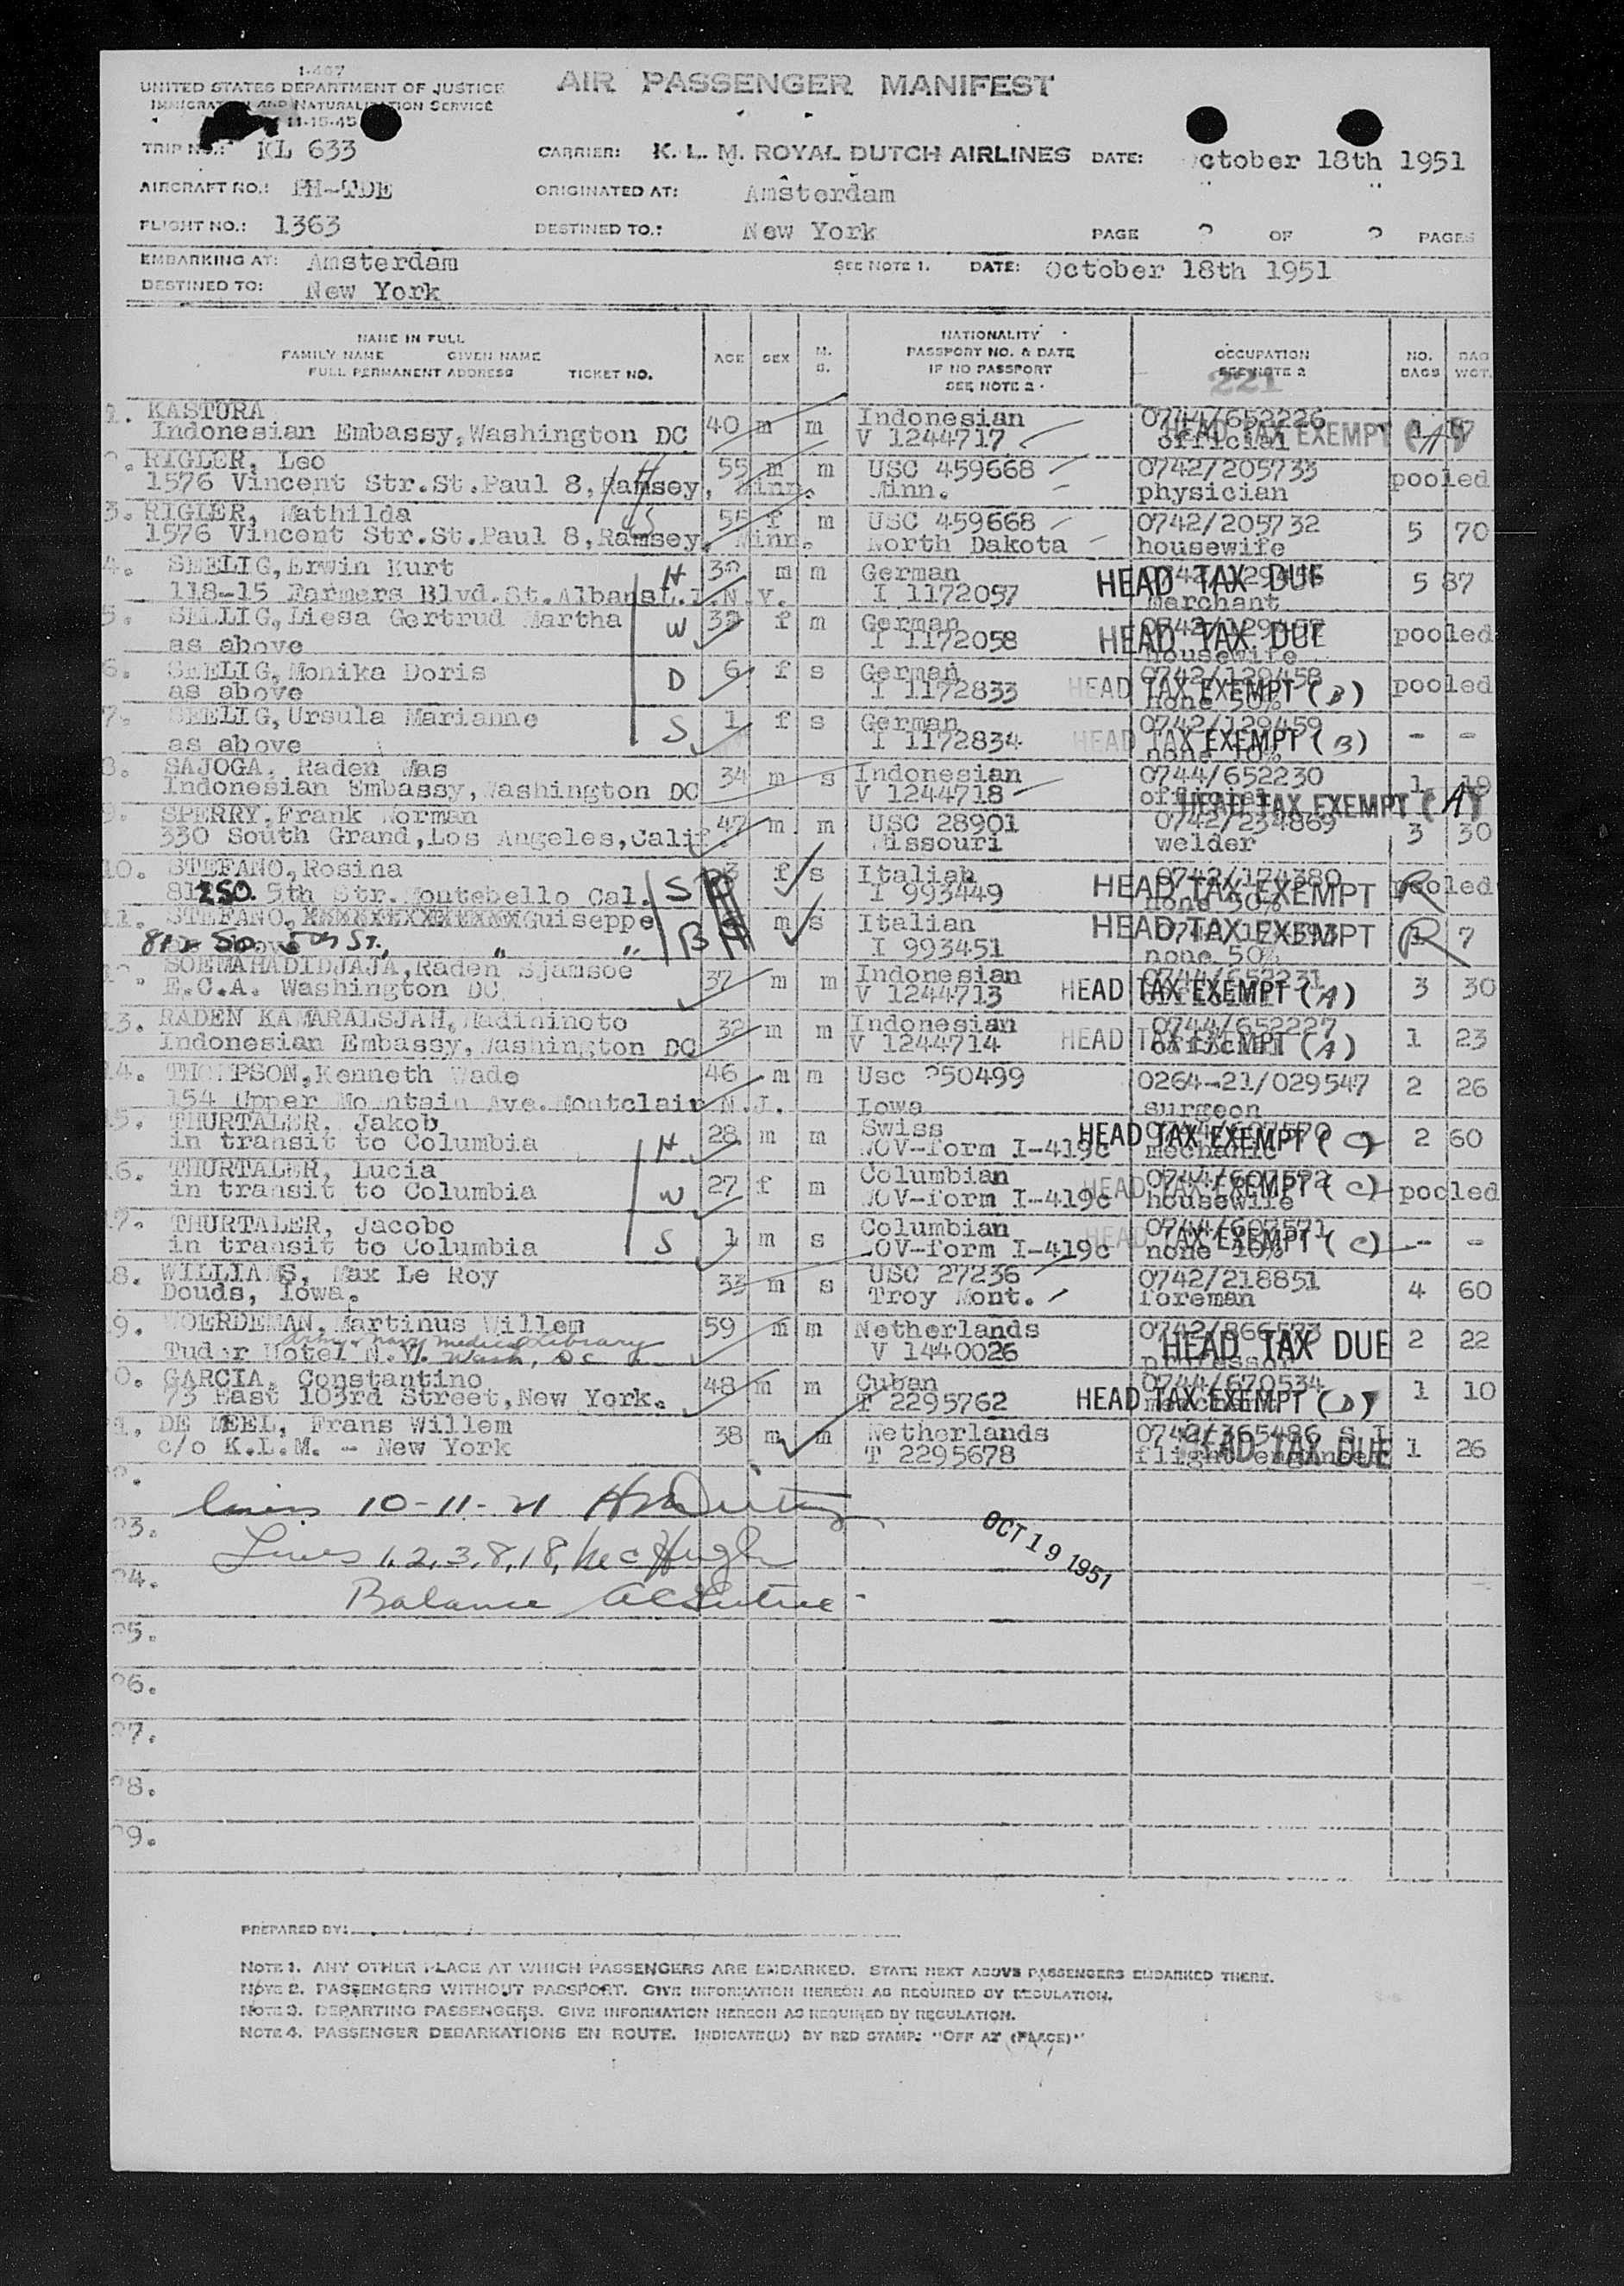 1-467
UNITED STATES DEPARTMENT OF JUSTICE
IMMIGRATION AND NATURALIZATION SERVICE
11-15-45
AIR PASSENGER MANIFEST
TRIP NO.: KL 633
CARRIER: K. L. M. ROYAL DUTCH AIRLINES DATE: ctober 18th 1951
AIRCRAFT NO.: PH-TDE ORIGINATED AT: Amsterdam
FLIGHT NO.: 1363 DESTINED TO.: New York PAGE OF PAGES
EMBARKING AT: Amsterdam SEE NOTE 1. DATE: October 18th 1951
DESTINED TO: New York
NAME IN FULL
FAMILY NAME GIVEN NAME
FULL PERMANENT ADDRESS TICKET NO.
AGE SEX M. S.
NATIONALITY
PASSPORT NO. & DATE
IF NO PASSPORT
SEE NOTE 2
OCCUPATION
SEE NOTE 2
221
NO. BAGS
BAG WGT.
1. KASTURA 40 m m Indonesian 0744/652226
Indonesian Embassy, Washington DC V 1244717 official HEAD TAX EXEMPT (A)
RIGLER, Leo 55 m m USC 459668 0742/205733 pooled
1576 Vincent Str.St.Paul 8, Ramsey, Minn. Minn. physician
3. RIGLER, Mathilda 55 f m USC 459668 0742/205732 5 70
1576 Vincent Str.St.Paul 8, Ramsey, Minn. North Dakota housewife
4. SEELIG, Erwin Kurt H m m German HEAD TAX DUE 5 87
118-15 Farmers Blvd.St.Albans L.I.N.Y. I 1172057 merchant
5. SEELIG, Liesa Gertrud Martha W f m German HEAD TAX DUE pooled
as above I 1172058 housewife
6. SEELIG, Monika Doris D 6 f s German 0742/129458 pooled
as above I 1172833 none 50% HEAD TAX EXEMPT (B)
7. SEELIG, Ursula Marianne S 1 f s German 0742/129459 - -
as above I 1172834 none 10% HEAD TAX EXEMPT (B)
8. SAJOGA, Raden Mas 34 m s Indonesian 0744/652230 1 19
Indonesian Embassy, Washington DC V 1244718 official HEAD TAX EXEMPT (A)
9. SPERRY, Frank Norman 47 m m USC 28901 0742/234869 3 30
330 South Grand, Los Angeles, Calif. Missouri welder
10. STEFANO, Rosina S f s Italian 0742/174380 pooled
5th Str. Montebello Cal. I 993449 none 50% HEAD TAX EXEMPT R
11. STEFANO, Guiseppe B m s Italian HEAD TAX EXEMPT R 7
5th St. " " I 993451 none 50%
SOEMAHADIDJAJA, Raden Sjamsoe 37 m m Indonesian 0744/652231 3 30
E.C.A. Washington DC V 1244713 HEAD TAX EXEMPT (A)
13. RADEN KAMARALSJAH, Hadininoto 32 m m Indonesian 0744/652227 1 23
Indonesian Embassy, Washington DC V 1244714 official HEAD TAX EXEMPT (A)
14. THOMPSON, Kenneth Wade 46 m m Usc 250499 0264-21/029547 2 26
154 Upper Mountain Ave. Montclair N.J. Iowa surgeon
15. THURTALER, Jakob H 28 m m Swiss 0744/607570 2 60
in transit to Columbia WOV-form I-419c mechanic HEAD TAX EXEMPT (C)
16. THURTALER, Lucia W 27 f m Columbian 0744/607572 pooled
in transit to Columbia WOV-form I-419c housewife HEAD TAX EXEMPT (C)
17. THURTALER, Jacobo S 1 m s Columbian 0744/607571 - -
in transit to Columbia WOV-form I-419c none 10% HEAD TAX EXEMPT (C)
18. WILLIAMS, Max Le Roy 33 m s USC 27236 0742/218851 4 60
Douds, Iowa. Troy Mont. foreman
19. WOERDEMAN, Martinus Willem 59 m m Netherlands HEAD TAX DUE 2 22
Army & Navy Medical Library
Tudor Hotel N.Y. Wash, DC V 1440026 professor
20. GARCIA, Constantino 48 m m Cuban 0744/670534 1 10
73 East 103rd Street, New York. T 2295762 HEAD TAX EXEMPT (D)
21. DE MEEL, Frans Willem 38 m m Netherlands 0742/365486 1 26
c/o K.L.M. - New York T 2295678 flight engineer HEAD TAX DUE
Lines 10-11-21
23.
OCT 19 1951
Lines 1,2,3,8,18,
24.
Balance
25.
26.
27.
28.
29.
PREPARED BY:
NOTE 1. ANY OTHER PLACE AT WHICH PASSENGERS ARE EMBARKED. STATE NEXT ABOVE PASSENGERS EMBARKED THERE.
NOTE 2. PASSENGERS WITHOUT PASSPORT. GIVE INFORMATION HEREON AS REQUIRED BY REGULATION.
NOTE 3. DEPARTING PASSENGERS. GIVE INFORMATION HEREON AS REQUIRED BY REGULATION.
NOTE 4. PASSENGER DEBARKATIONS EN ROUTE. INDICATE(D) BY RED STAMP: "OFF AT (PLACE)"